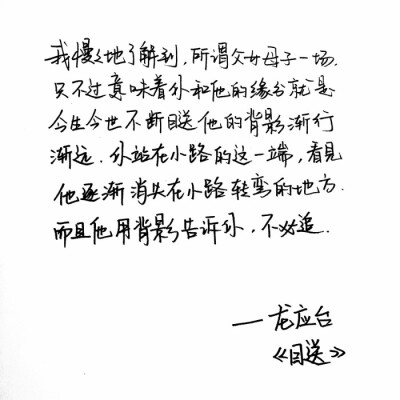 我慢々地了解到，所谓父女母子一场.
只不过意味着你和他的缘分就是
今生今世不断目送他的背影渐行
渐远．你站在小路的这一端，看见
他逐渐消失在小路转弯的地方．
而且他用背影告诉你，不必追．
——龙应台
《目送》